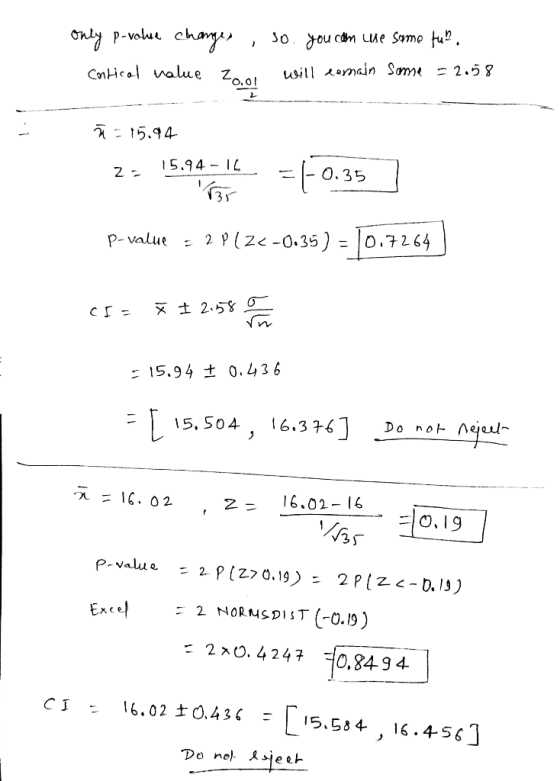 only p-value changes, so you can use same fun.
Critical value Z0.01/2 will remain same = 2.58
x̄ = 15.94
Z = (15.94 - 16)/(1/√35) = -0.35
P-value = 2 P(Z<-0.35) = 0.7264
CI = x̄ ± 2.58 σ/√n
= 15.94 ± 0.436
= [15.504, 16.376] Do not reject
x̄ = 16.02, Z = (16.02-16)/(1/√35) = 0.19
P-value = 2 P(Z>0.19) = 2P(Z<-0.19)
Excel = 2 NORMSDIST(-0.19)
= 2×0.4247 = 0.8494
CI = 16.02 ± 0.436 = [15.584, 16.456]
Do not reject